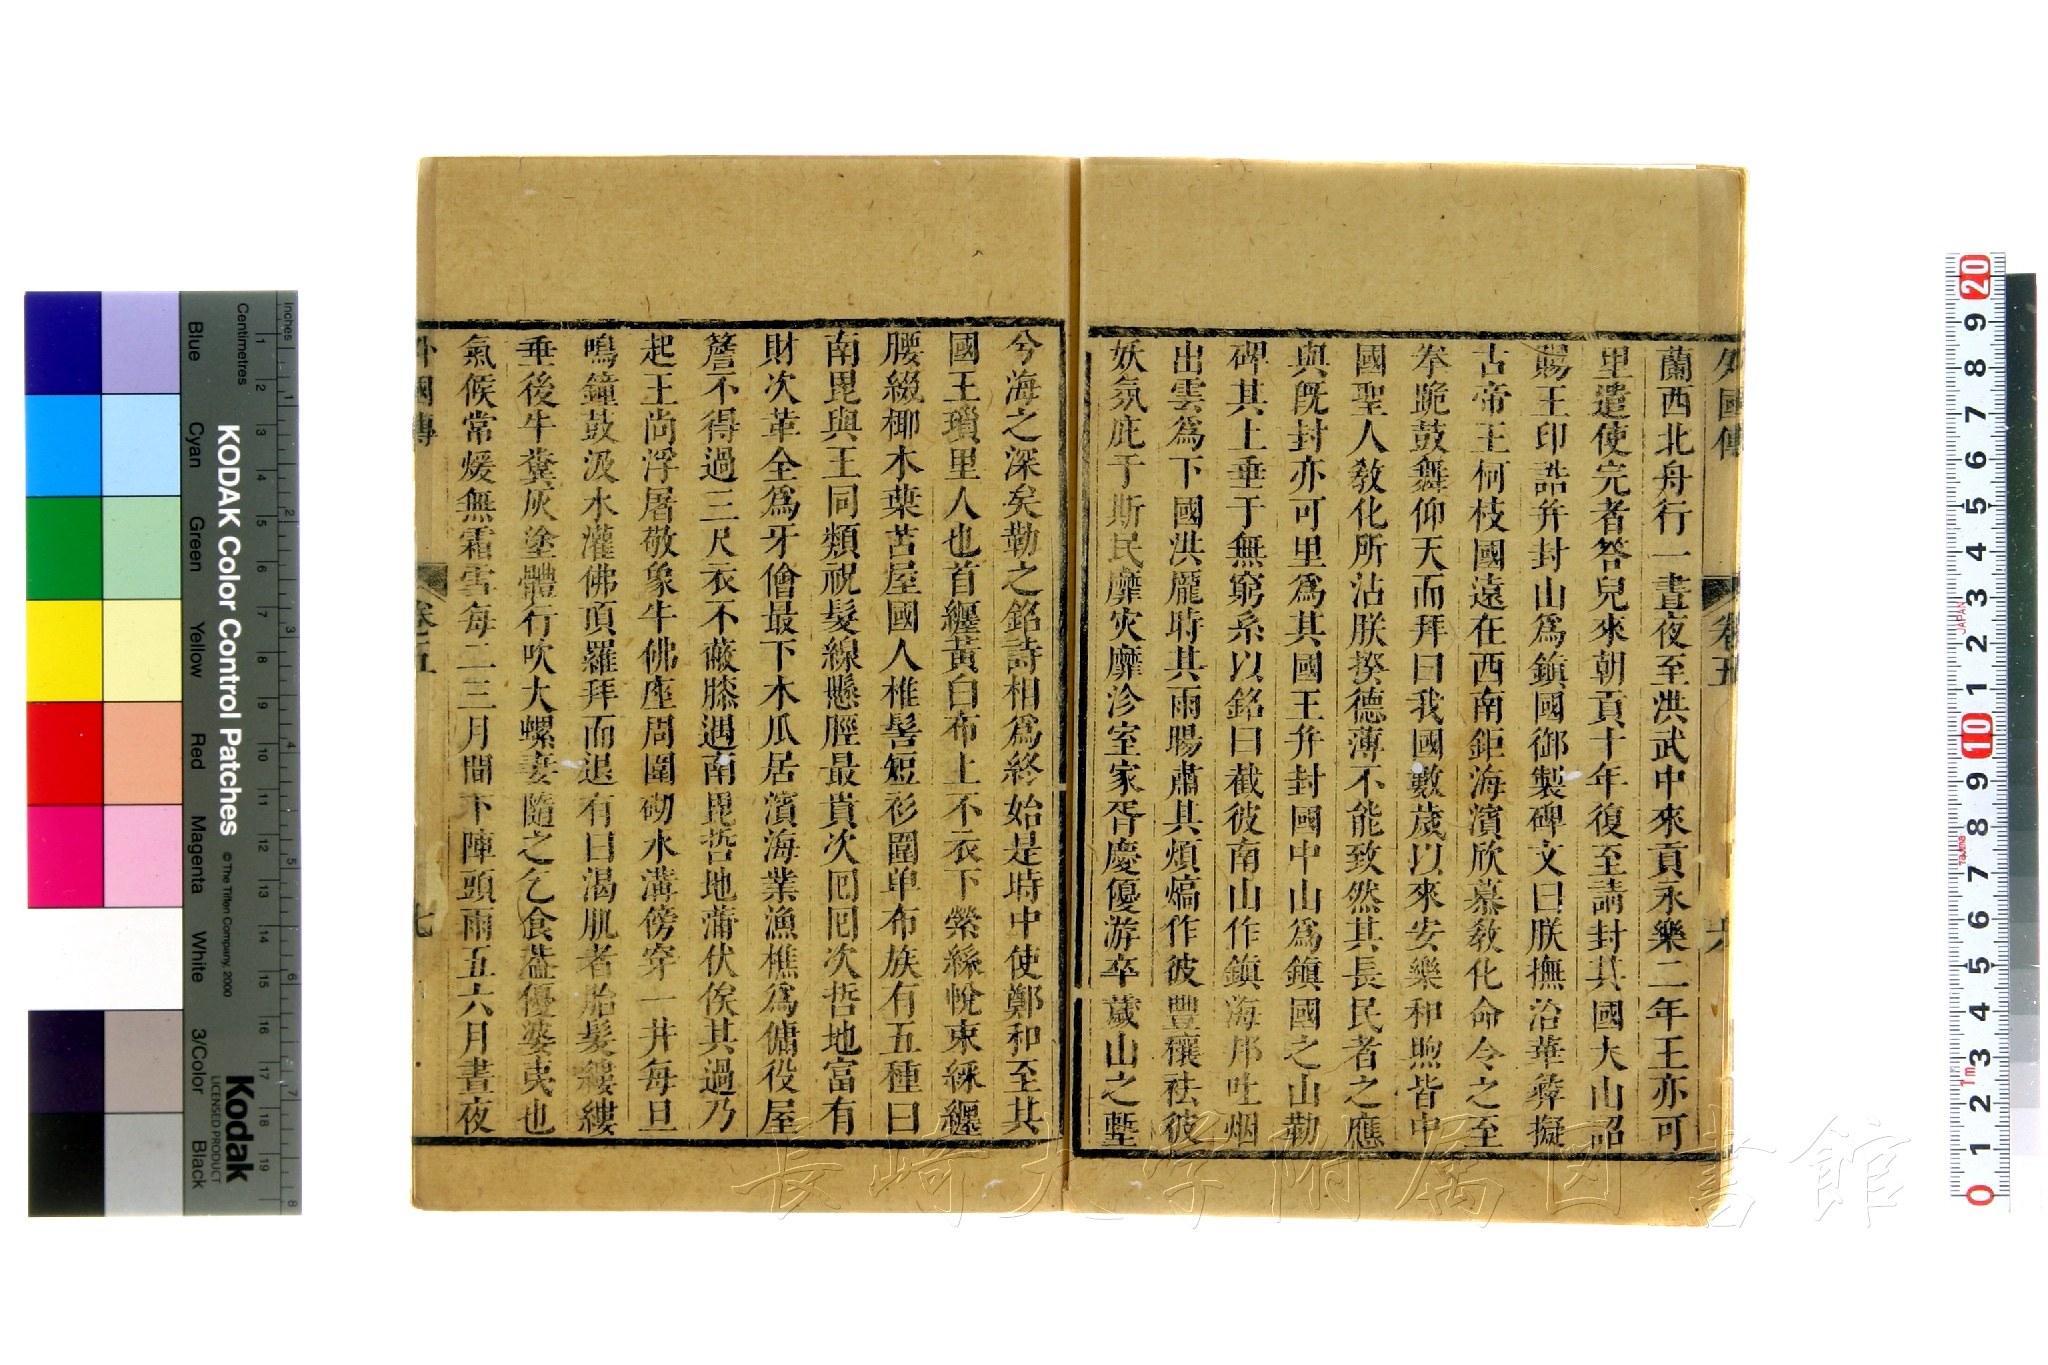 外國傳 卷五 六
蘭西北舟行一晝夜至洪武中來貢永樂二年王亦可
里遣使完者答兒來朝貢十年復至請封其國大山詔
賜王印誥并封山爲鎮國御製碑文曰朕撫治華彝擬
古帝王柯枝國遠在西南鉅海濱欣慕敎化命令之至
拳跪鼓舞仰天而拜曰我國數歲以來安樂和煦皆中
國聖人敎化所沾朕揆德薄不能致然其長民者之應
與旣封亦可里爲其國王弁封國中山爲鎮國之山勒
碑其上垂于無窮系以銘曰截彼南山作鎮海邦吐烟
出雲爲下國洪龐時其雨暘肅其煩熇作彼豐穰祛彼
妖氛庇于斯民靡灾靡沴室家胥慶優游卒歲山之塹
兮海之深矣勒之銘詩相爲終始是時中使鄭和至其
國王瑣里人也首纏黃白布上不衣下縈絲帨束綵纏
腰綴椰木葉苫屋國人椎髻短衫圍单布族有五種曰
南毘與王同類祝髮線懸脛最貴次囘囘次哲地富有
財次革全爲牙儈最下木瓜居濱海業漁樵爲傭役屋
簷不得過三尺衣不蔽膝遇南毘哲地蒲伏俟其過乃
起王尚浮屠敬象牛佛座周圍砌水溝傍穿一井每旦
鳴鐘鼓汲水灌佛頂羅拜而退有曰渴肌者胎髮縷縷
垂後牛糞灰塗體行吹大螺妻隨之乞食葢優婆夷也
氣候常煖無霜雪每二三月間下陣頭雨五六月晝夜
外國傳 卷五 七
長崎大学附属図書館
KODAK Color Control Patches
© The Tiffen Company, 2000
Kodak
LICENSED PRODUCT
Inches
Centimetres
1 2 3 4 5 6 7 8 9 10 11 12 13 14 15 16 17 18 19
1 2 3 4 5 6 7 8
Blue
Cyan
Green
Yellow
Red
Magenta
White
3/Color
Black
20 9 8 7 6 5 4 3 2 1 10 9 8 7 6 5 4 3 2 1 0
JAPAN